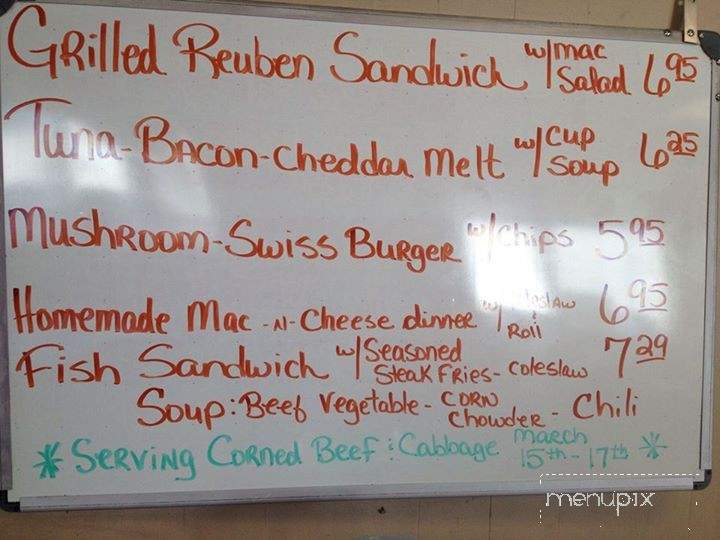 Grilled Reuben Sandwich w/ mac Salad 6 95
Tuna-Bacon-Cheddar Melt w/ Cup Soup 6 25
Mushroom-Swiss Burger w/ Chips 5 95
Homemade Mac -N- Cheese dinner w/ Coleslaw & Roll 6 95
Fish Sandwich w/ Seasoned Steak Fries - Coleslaw 7 29
Soup: Beef Vegetable - Corn Chowder - Chili
* Serving Corned Beef & Cabbage March 15th - 17th *
menupix